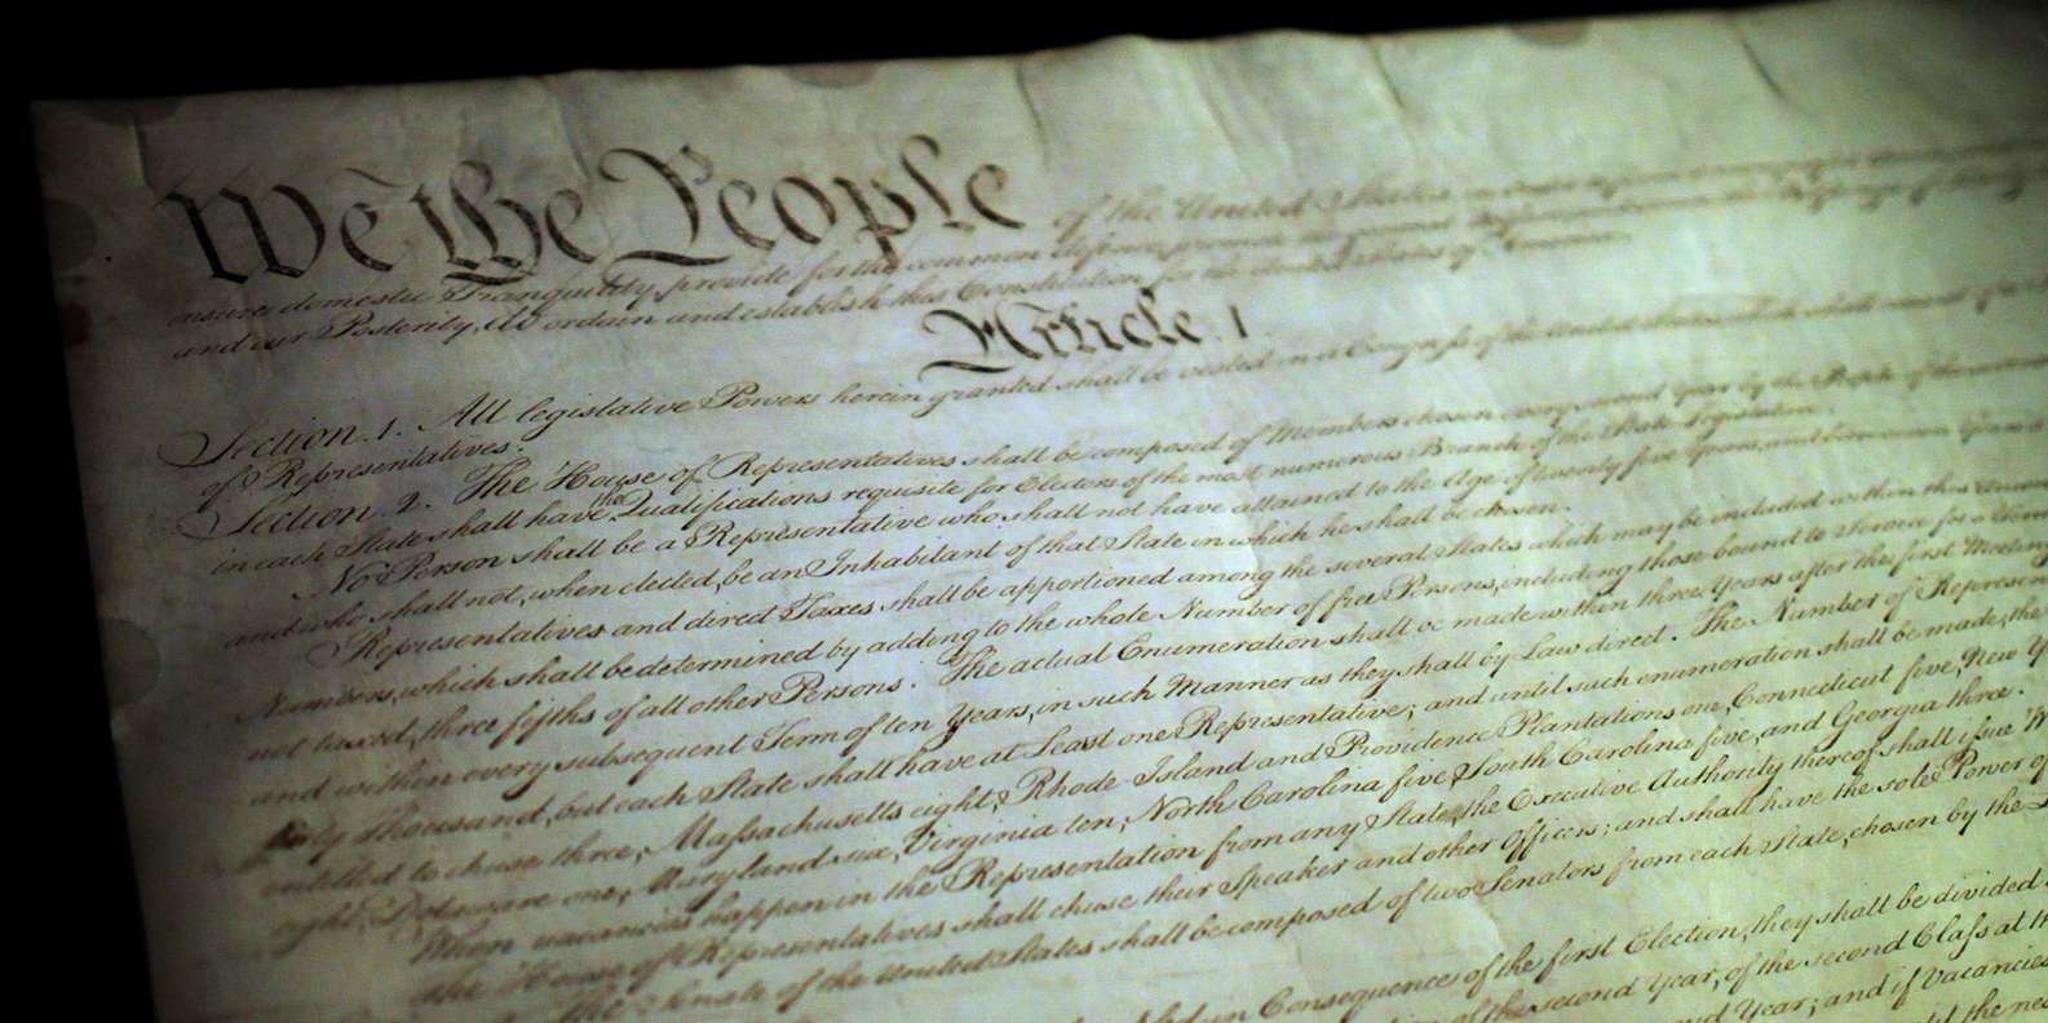 We the People of the United States
insure domestic Tranquility, provide for the common defence, promote
and our Posterity, do ordain and establish this Constitution for the United States of America.
Article. I.
Section. 1. All legislative Powers herein granted shall be vested in a Congress of the United States, which shall consist of
of Representatives.
Section. 2. The House of Representatives shall be composed of Members chosen every second Year by the People of the several
in each State shall have the Qualifications requisite for Electors of the most numerous Branch of the State Legislature.
No Person shall be a Representative who shall not have attained to the Age of twenty five Years, and been seven Years a
and who shall not, when elected, be an Inhabitant of that State in which he shall be chosen.
Representatives and direct Taxes shall be apportioned among the several States which may be included within this Union
Numbers, which shall be determined by adding to the whole Number of free Persons, including those bound to Service for a Term
not taxed, three fifths of all other Persons. The actual Enumeration shall be made within three Years after the first Meeting
and within every subsequent Term of ten Years, in such Manner as they shall by Law direct. The Number of Represen
thirty Thousand, but each State shall have at Least one Representative; and until such enumeration shall be made, the
entitled to chuse three, Massachusetts eight, Rhode Island and Providence Plantations one, Connecticut five, New Y
eight, Delaware one, Maryland six, Virginia ten, North Carolina five, South Carolina five, and Georgia three.
When vacancies happen in the Representation from any State, the Executive Authority thereof shall issue W
The House of Representatives shall chuse their Speaker and other Officers; and shall have the sole Power of
The Senate of the United States shall be composed of two Senators from each State, chosen by the
in Consequence of the first Election, they shall be divided
of the second Year, of the second Class at th
Year; and if Vacancies
the ne